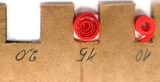 20
15
10